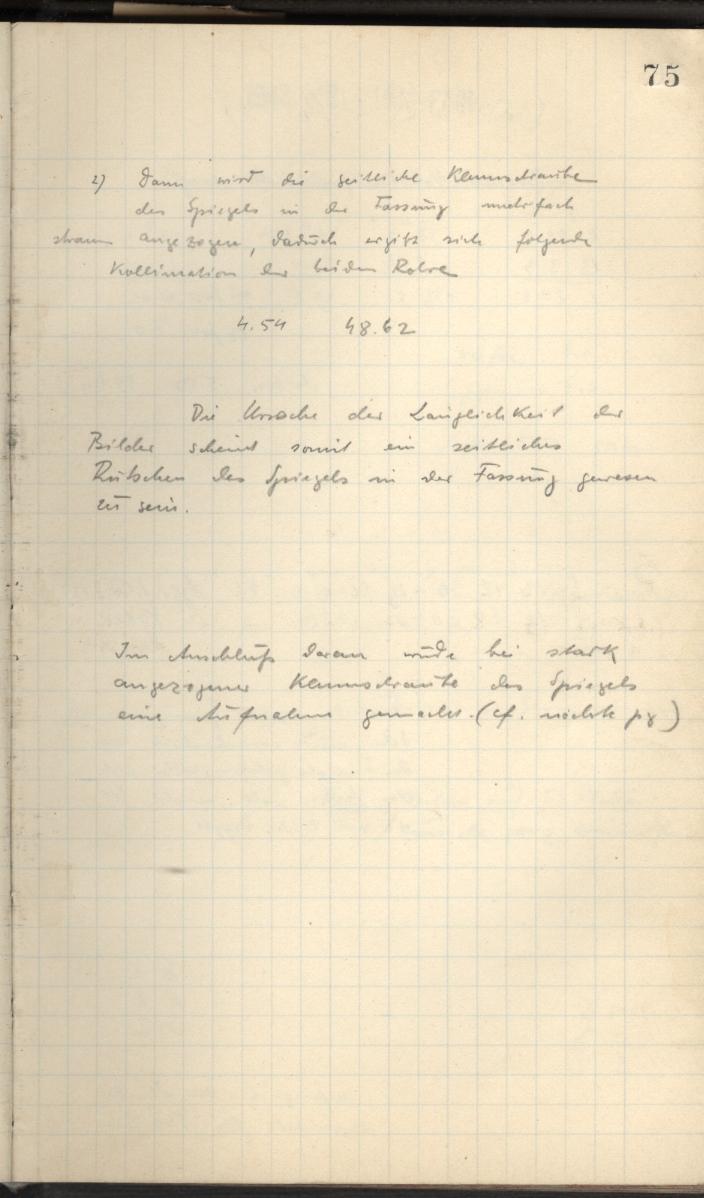 75
2) Dann wird die seitliche Klemmschraube
des Spiegels in der Fassung mehrfach
stramm angezogen, dadurch ergibt sich folgende
Kollimation der beiden Rohre
4.54 48.62
Die Ursache der Länglichkeit der
Bilder scheint somit ein seitliches
Rutschen des Spiegels in der Fassung gewesen
zu sein.
Im Anschluß daran wurde bei stark
angezogener Klemmschraube des Spiegels
eine Aufnahme gemacht. (cf. nächste pg)